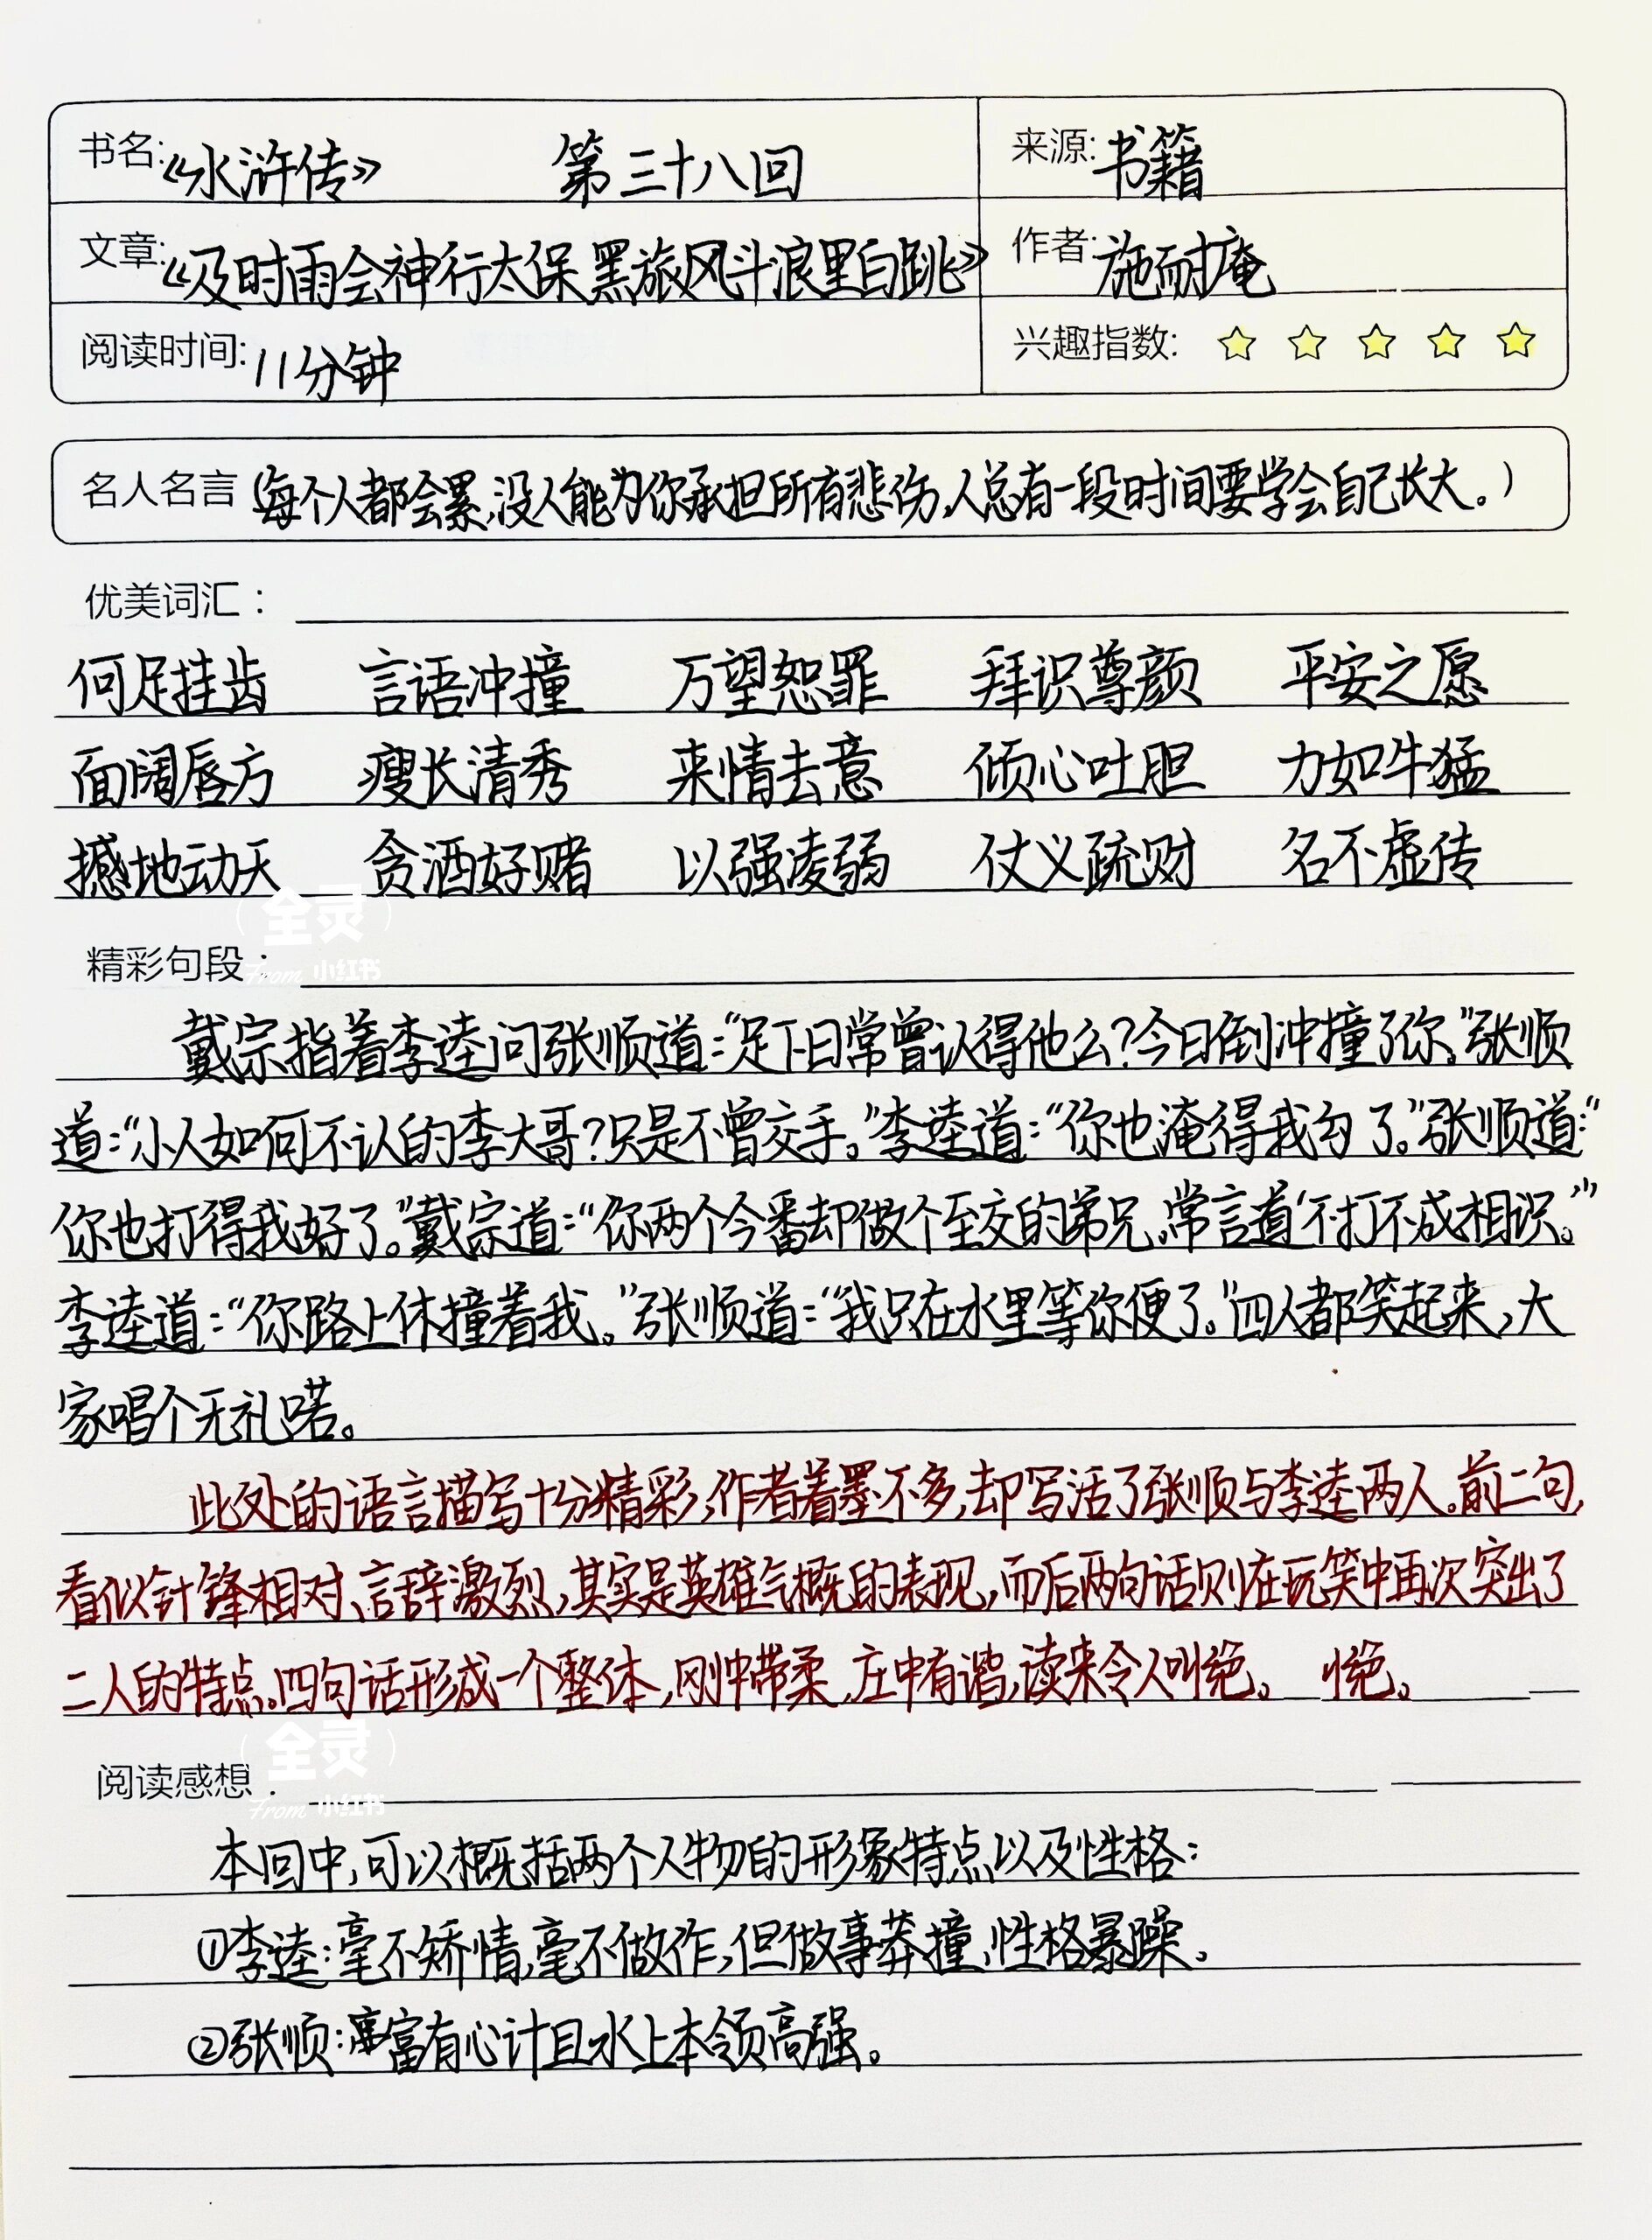 书名:《水浒传》 第三十八回 来源:书籍
文章:《及时雨会神行太保 黑旋风斗浪里白跳》 作者:施耐庵
阅读时间:11分钟 兴趣指数:☆ ☆ ☆ ☆ ☆
名人名言(每个人都会累,没人能为你承担所有悲伤,人总有一段时间要学会自己长大。)
优美词汇:
何足挂齿 言语冲撞 万望恕罪 拜识尊颜 平安之愿
面阔唇方 瘦长清秀 来情去意 倾心吐胆 力如牛猛
撼地动天 贪酒好赌 以强凌弱 仗义疏财 名不虚传
全灵
精彩句段:
From 小红书
戴宗指着李逵问张顺道:“足下日常曾认得他么?今日倒冲撞了你。”张顺
道:“小人如何不认的李大哥?只是不曾交手。”李逵道:“你也淹得我勾了。”张顺道:“
你也打得我好了。”戴宗道:“你两个今番却做个至交的弟兄。常言道‘不打不成相识。’”
李逵道:“你路上休撞着我。”张顺道:“我只在水里等你便了。”四人都笑起来,大
家唱个无礼喏。
此处的语言描写十分精彩,作者着墨不多,却写活了张顺与李逵两人。前二句,
看似针锋相对、言辞激烈,其实是英雄气概的表现,而后两句话则在玩笑中再次突出了
二人的特点。四句话形成一个整体,刚中带柔,庄中有谐,读来令人叫绝。 绝。
全灵
阅读感想:
From 小红书
本回中,可以概括两个人物的形象特点以及性格:
①李逵:毫不矫情,毫不做作,但做事莽撞,性格暴躁。
②张顺:富有心计且水上本领高强。